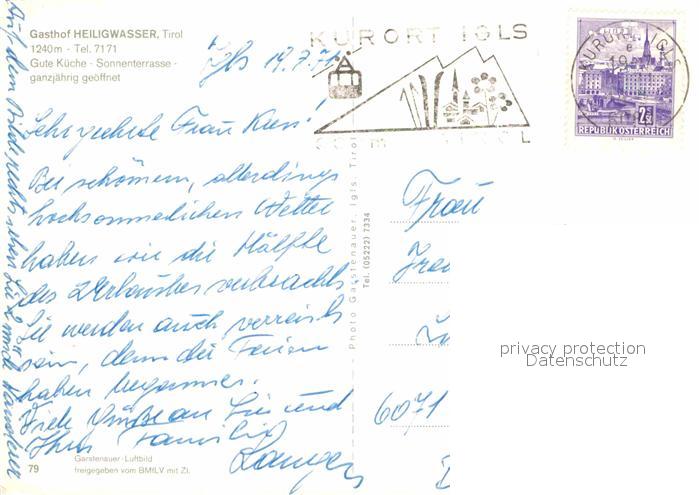 Gasthof HEILIGWASSER, Tirol
1240m - Tel. 7171
Gute Küche - Sonnenterrasse -
ganzjährig geöffnet
Igls 19.7.71
KURORT IGLS
KURORT IGLS
2.50
REPUBLIK ÖSTERREICH
Sehr geehrte Frau
Bei schönem, allerdings
hochsommerlichen Wetter
haben wir die Hälfte
des Urlaubes verbracht.
Sie werden auch verreist
sein, denn die Ferien
haben begonnen.
Viele Grüße an Sie und
Ihre Familie
Langen
Auf dem Bild rechts oben
Photo Garstenauer, Igls, Tirol
Tel. (05222) 7334
Frau
6071
79
Garstenauer-Luftbild
freigegeben vom BMfLV mit Zl.
privacy protection
Datenschutz